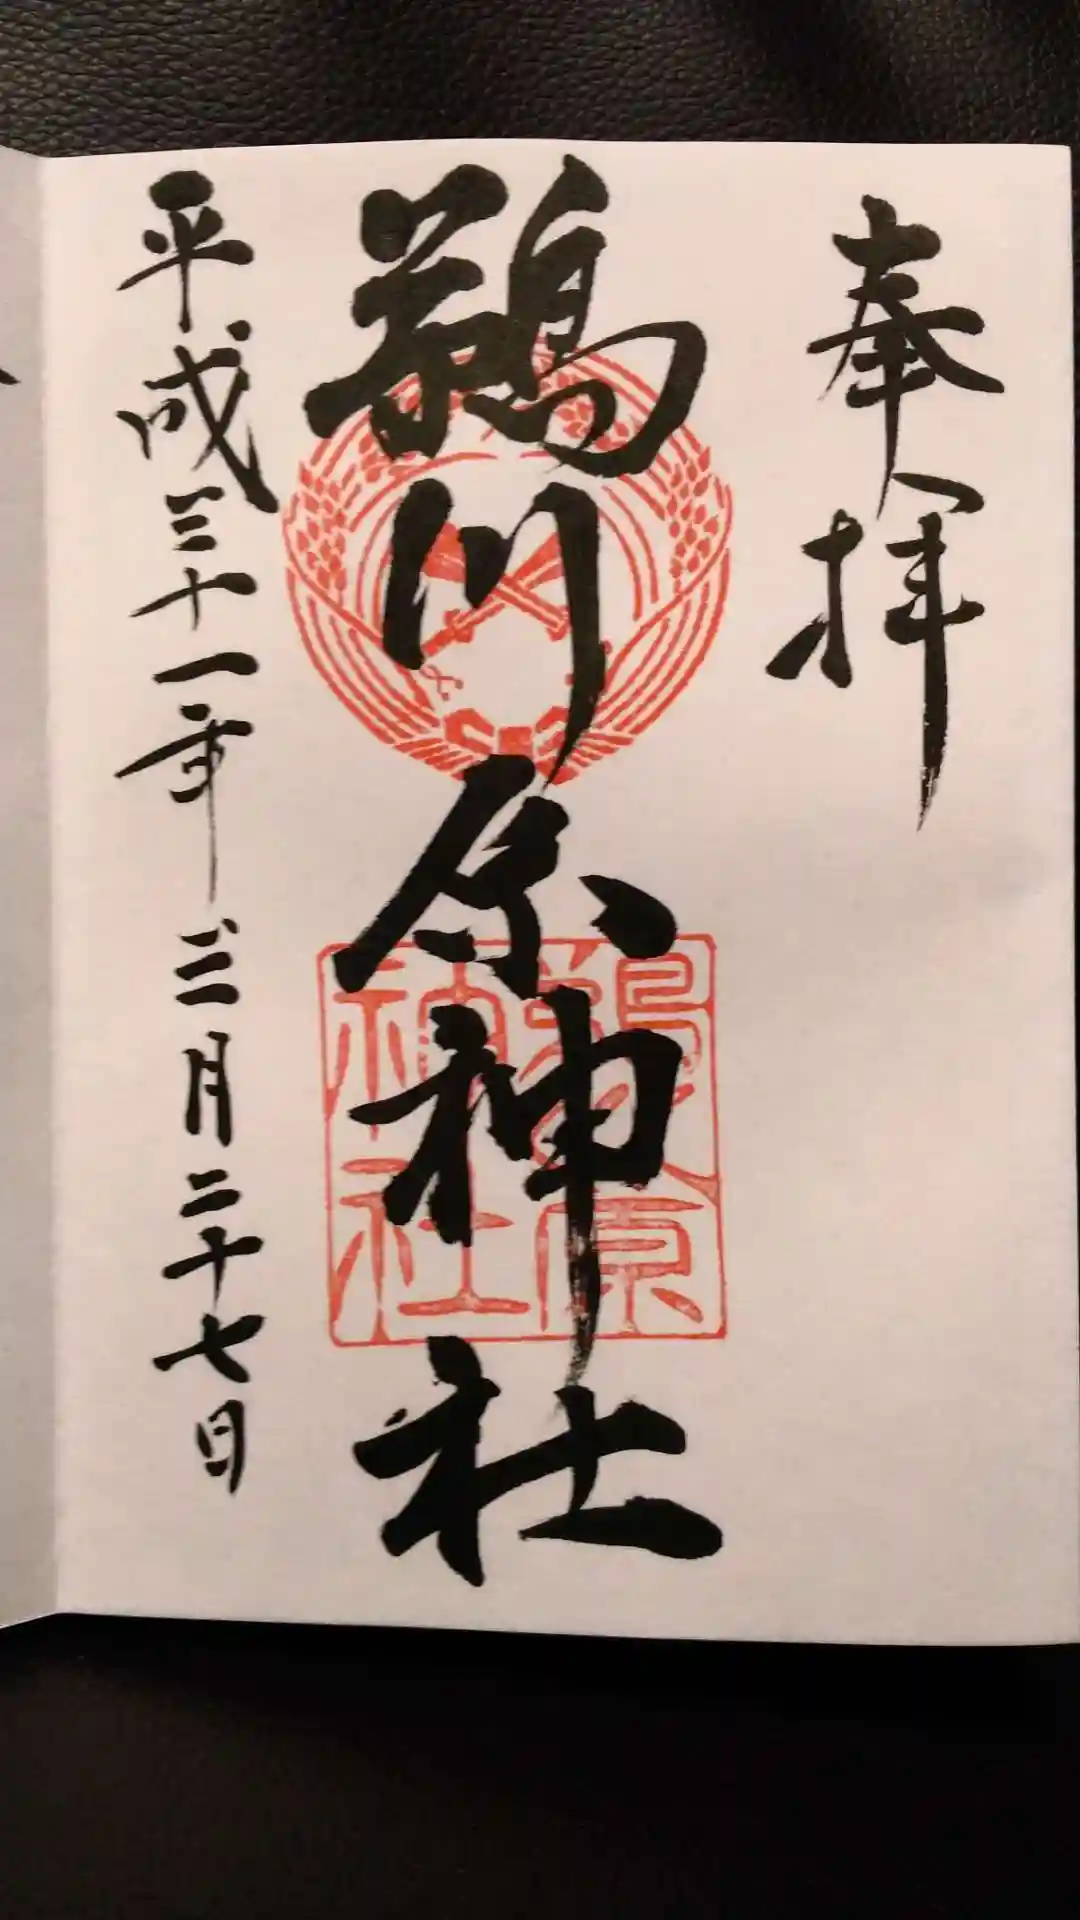 奉拝
鷏川原神社
平成三十一年三月二十七日
神社
原